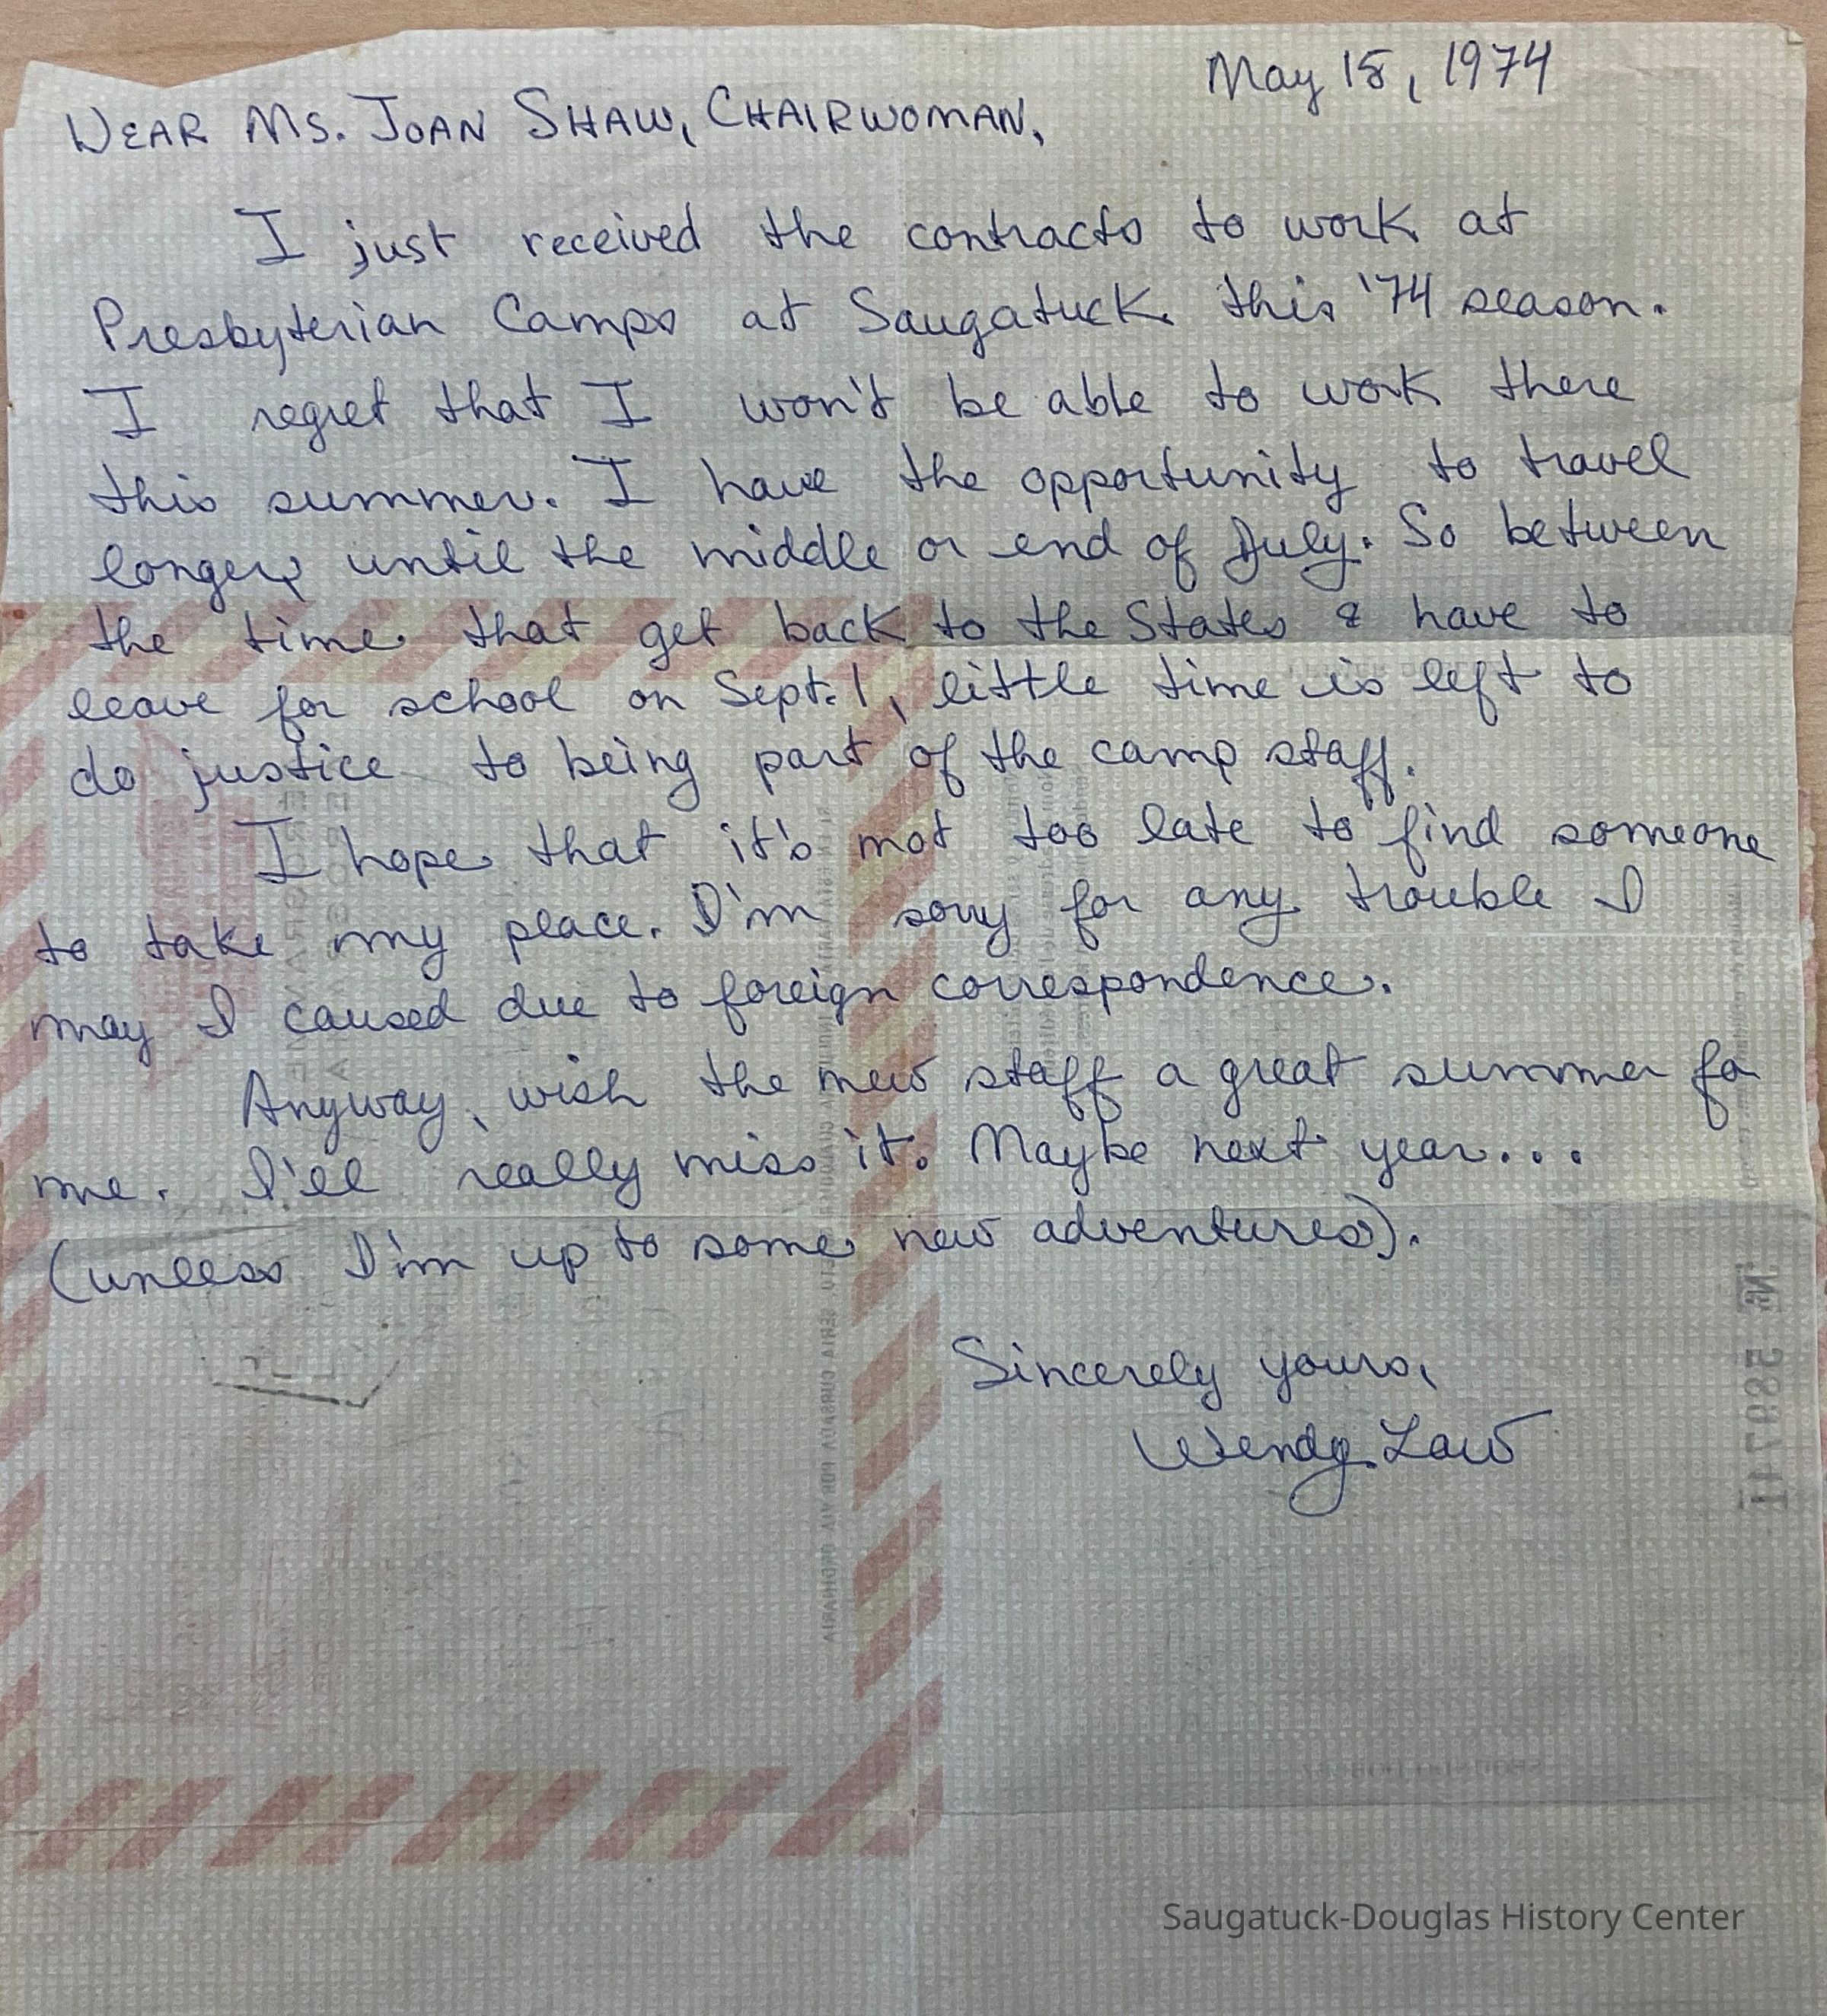 May 18, 1974
DEAR MS. JOAN SHAW, CHAIRWOMAN,
I just received the contracts to work at
Presbyterian Camps at Saugatuck this '74 season.
I regret that I won't be able to work there
this summer. I have the opportunity to travel
longer, until the middle or end of July. So between
the time that get back to the States & have to
leave for school on Sept. 1, little time is left to
do justice to being part of the camp staff.
I hope that it's not too late to find someone
to take my place. I'm sorry for any trouble I
may I caused due to foreign correspondence.
Anyway, wish the new staff a great summer for
me. I'll really miss it. Maybe next year...
(unless I'm up to some new adventures).
Sincerely yours,
Wendy Law
Nº 589741
Saugatuck-Douglas History Center